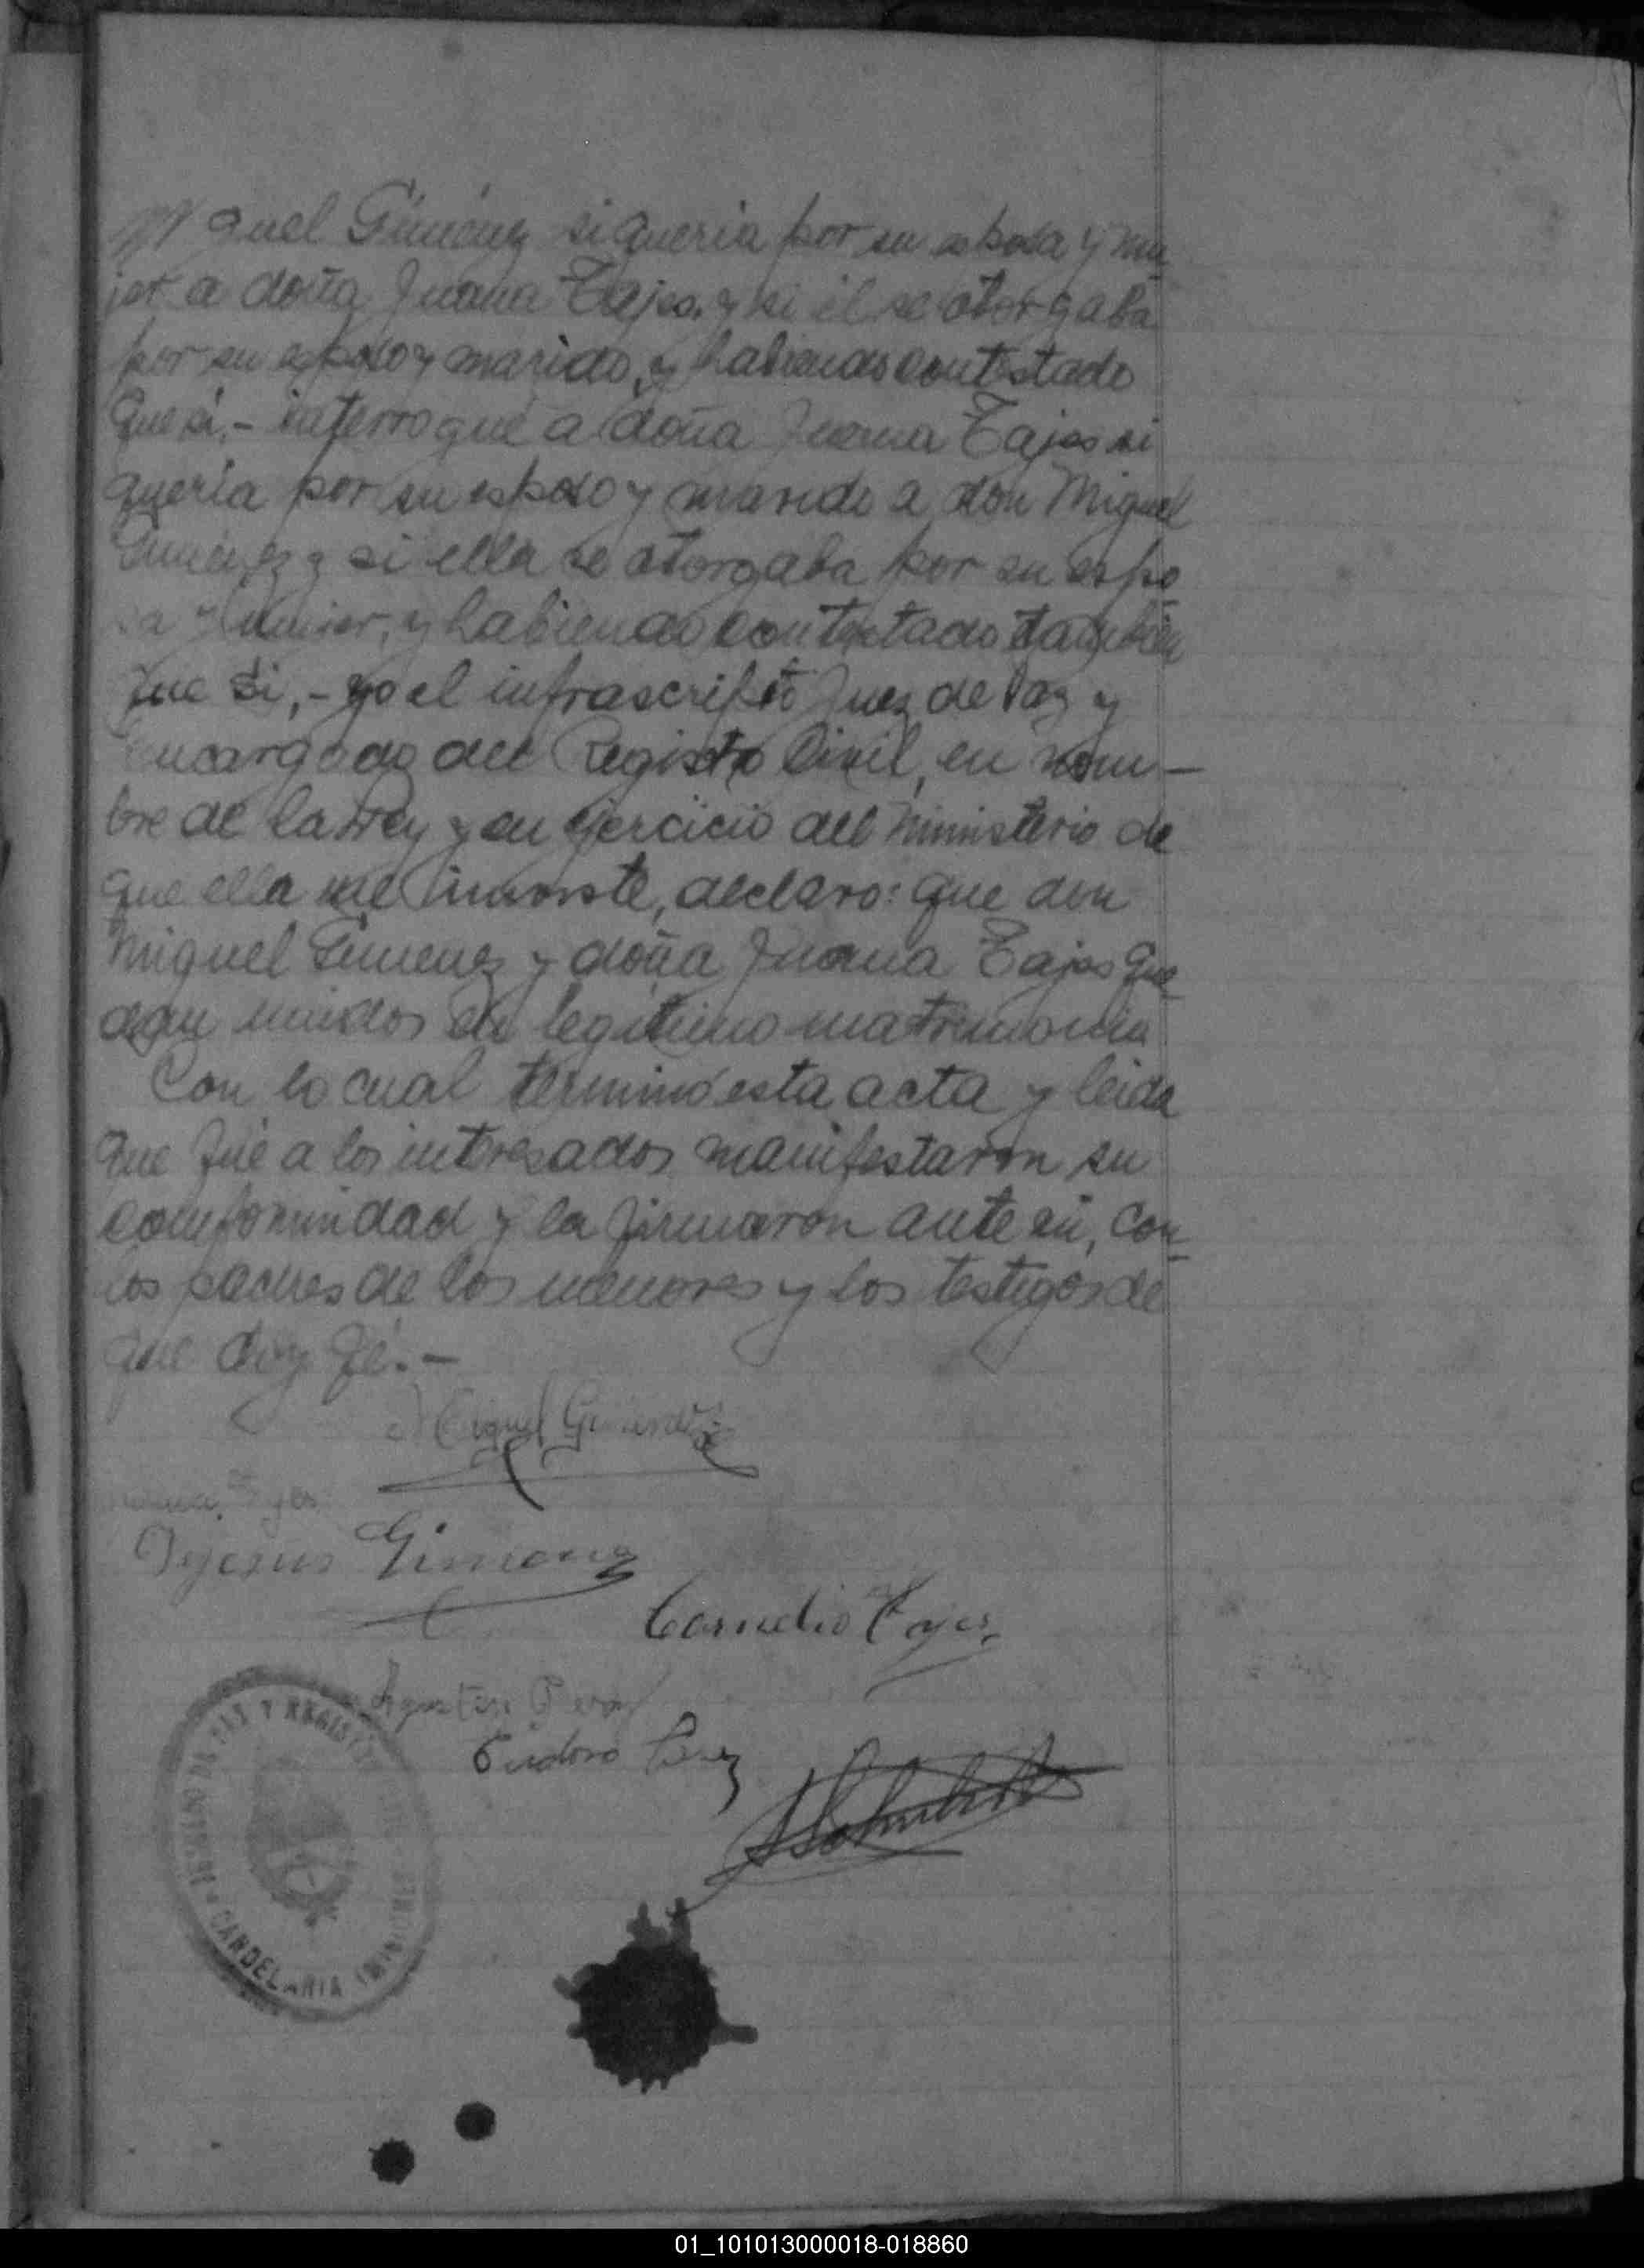 Miguel Gimenez si queria por su esposa y mu-
jer a doña Juana Tajes, y si él se otorgaba
por su esposo y marido, y habiendo contestado
que si,- interrogué a doña Juana Tajes si
queria por su esposo y marido a don Miguel
Gimenez y si ella se otorgaba por su espo-
sa y mujer, y habiendo contestado también
que si,- yo el infrascripto Juez de Paz y
encargado del Registro Civil, en nom-
bre de la Ley y en ejercicio del ministerio de
que ella me inviste, declaro: que don
Miguel Gimenez y doña Juana Tajes que-
dan unidos en legitimo matrimonio
Con lo cual terminó esta acta y leida
que fué a los interesados manifestaron su
conformidad y la firmaron ante mi, con
los padres de los menores y los testigos de
que doy fé.-
Miguel Gimenez
Juana Tajes
Gimenez
Cornelio Tajes
Agustin
Isidoro
DE PAZ Y REGISTRO
CANDELARIA (MISIONES)
01_101013000018-018860